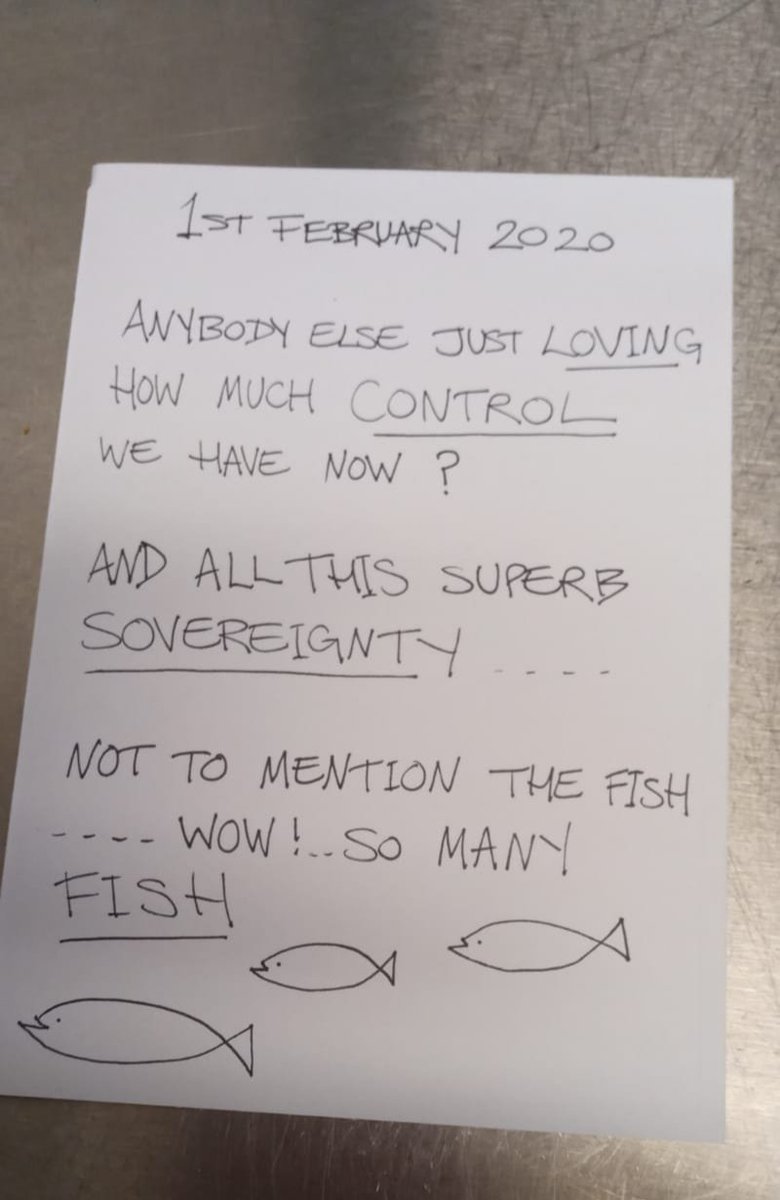 1ST FEBRUARY 2020
ANYBODY ELSE JUST LOVING
HOW MUCH CONTROL
WE HAVE NOW ?
AND ALL THIS SUPERB
SOVEREIGNTY ----
NOT TO MENTION THE FISH
---- WOW!..SO MANY
FISH